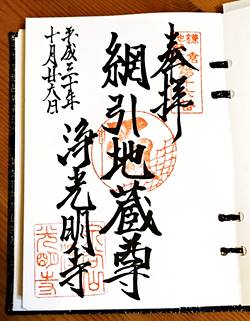 奉拝
網引地蔵尊
浄光明寺
平成三十年
十月廿六日